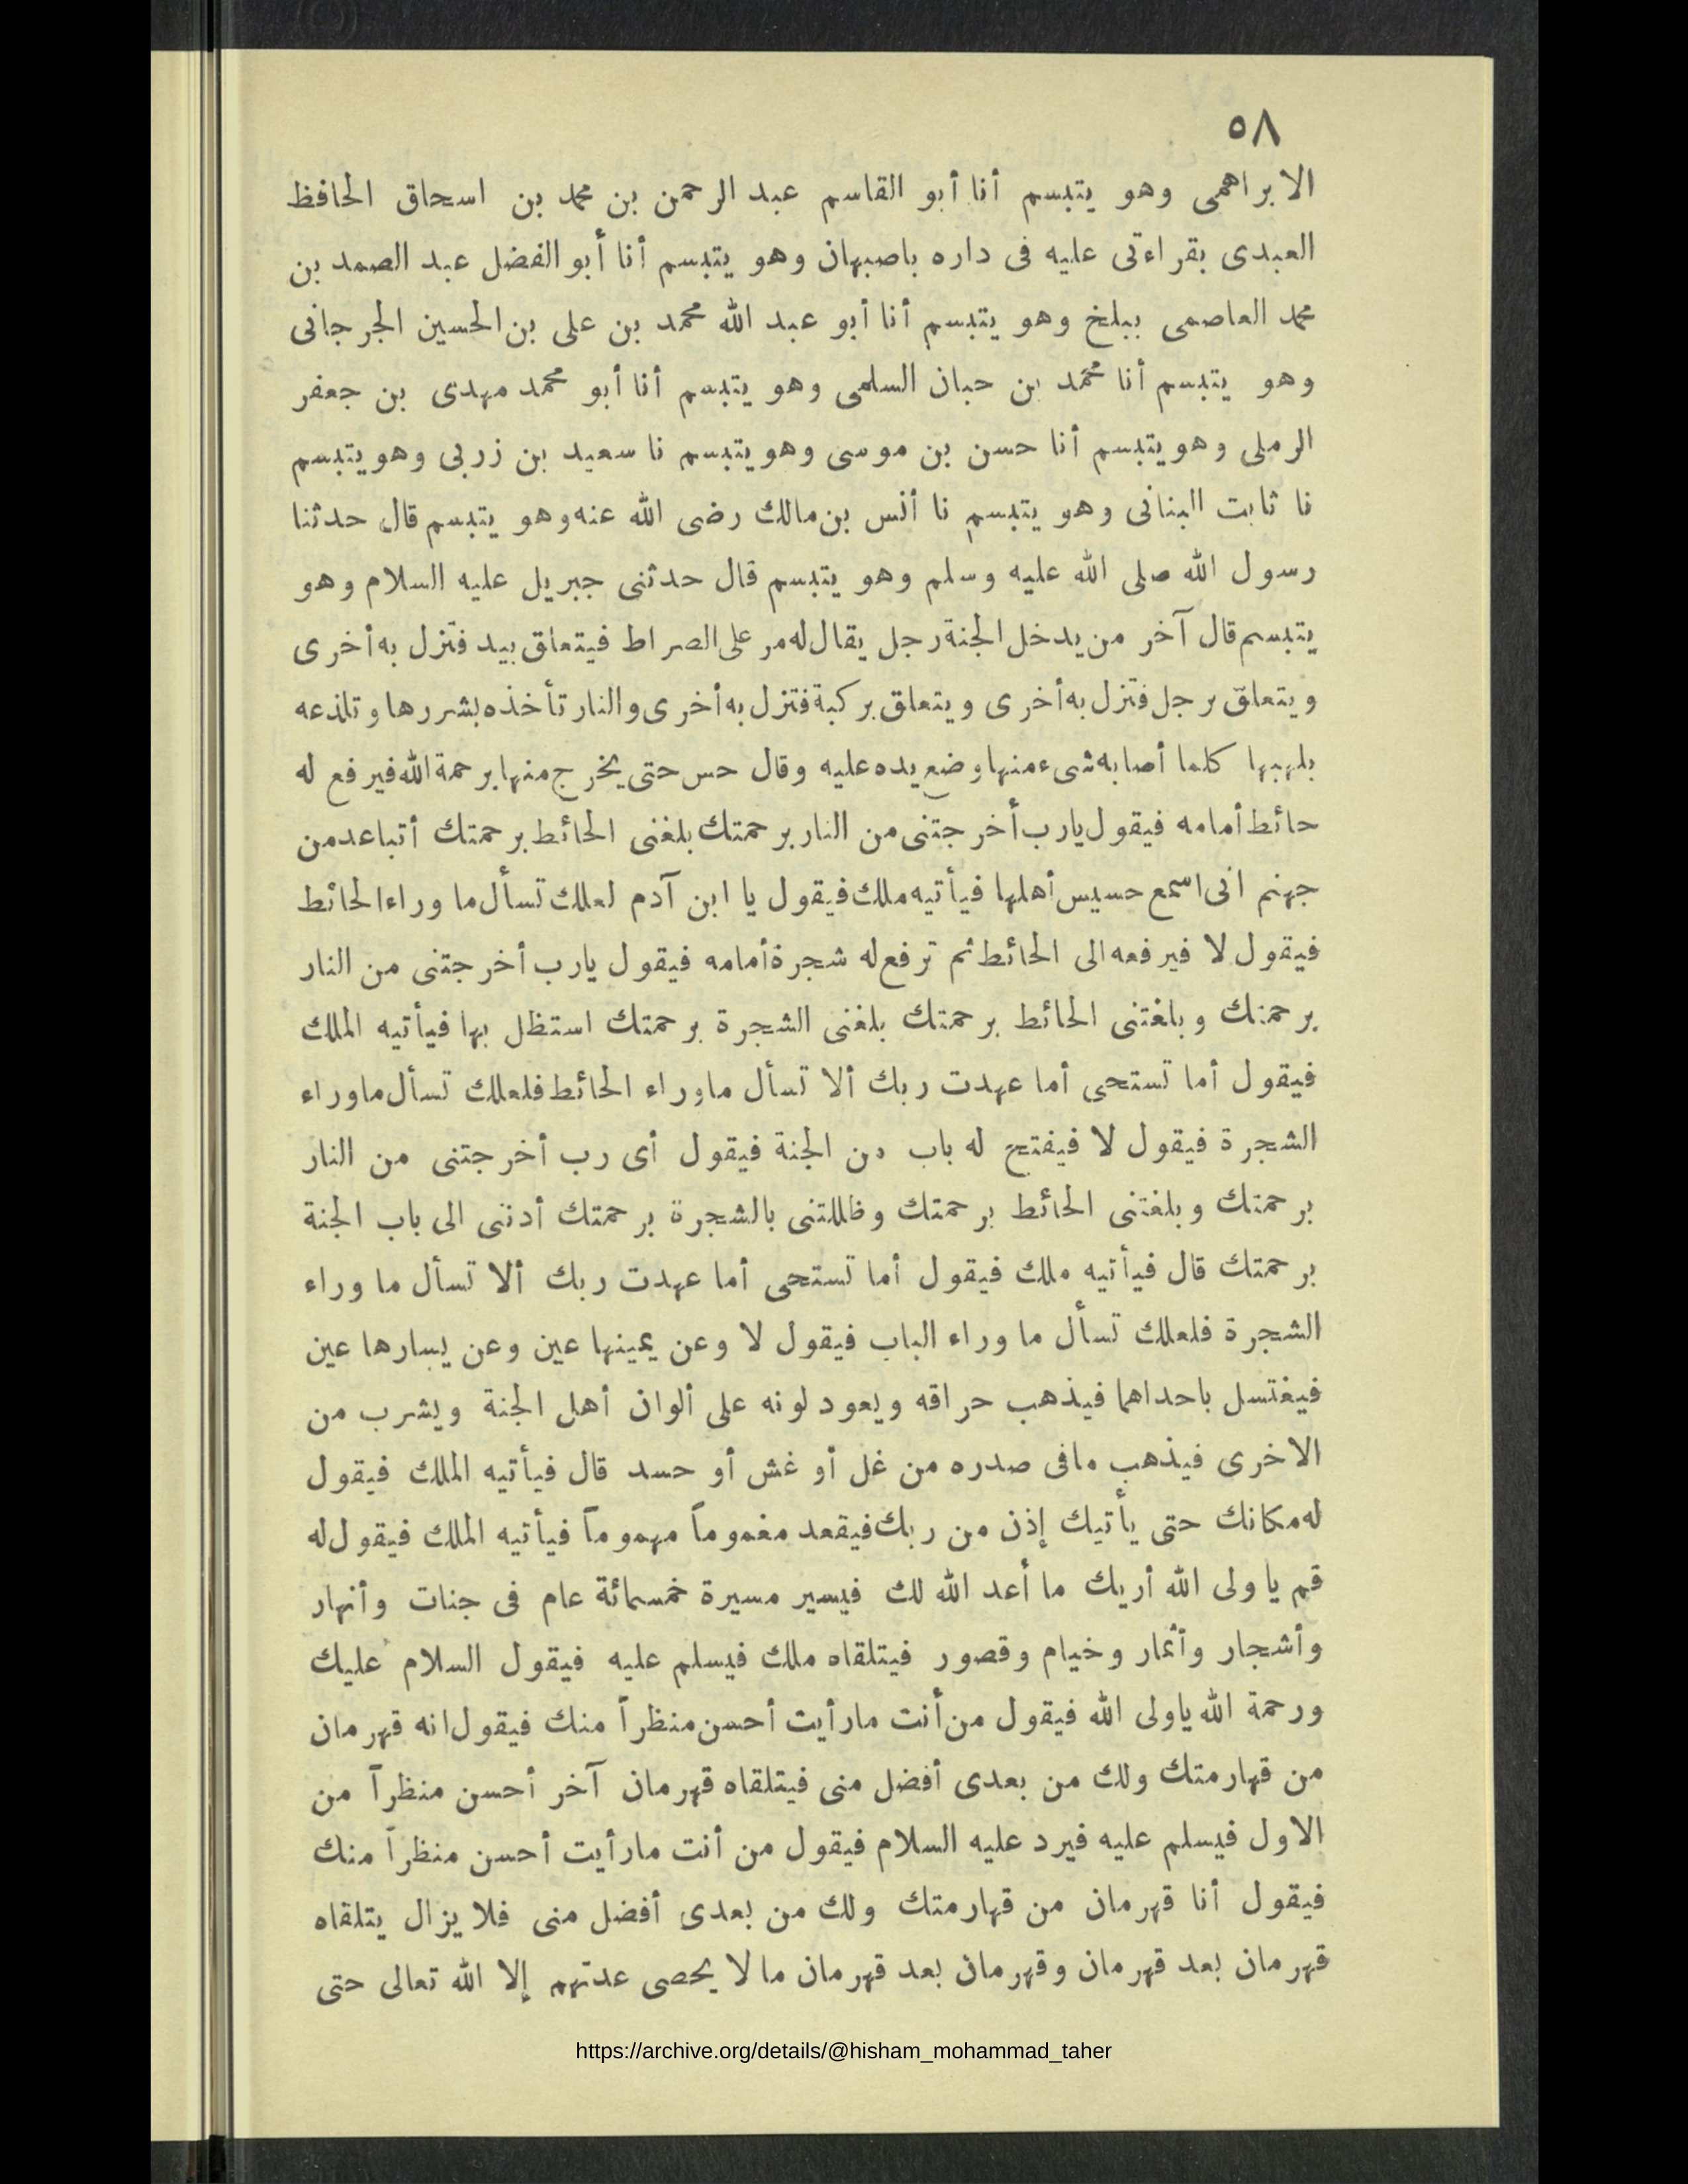 ٥٨
الابراهمى وهو يتبسم أنا أبو القاسم عبد الرحمن بن محمد بن اسحاق الحافظ
العبدى بقراءتى عليه فى داره باصبهان وهو يتبسم أنا أبو الفضل عبد الصمد بن
محمد العاصمى ببلخ وهو يتبسم أنا أبو عبد الله محمد بن على بن الحسين الجرجانى
وهو يتبسم أنا محمد بن حبان السلمى وهو يتبسم أنا أبو محمد مهدى بن جعفر
الرملى وهو يتبسم أنا حسن بن موسى وهو يتبسم نا سعيد بن زربى وهو يتبسم
نا ثابت البنانى وهو يتبسم نا أنس بن مالك رضى الله عنه وهو يتبسم قال حدثنا
رسول الله صلى الله عليه وسلم وهو يتبسم قال حدثنى جبريل عليه السلام وهو
يتبسم قال آخر من يدخل الجنة رجل يقال له مر على الصراط فيتعلق بيد فتزل به أخرى
ويتعلق برجل فتزل به أخرى ويتعلق بركبة فتزل به أخرى والنار تأخذه بشررها وتلذعه
بلهبها كلما أصابه شىء منها وضع يده عليه وقال حس حتى يخرج منها برحمة الله فيرفع له
حائط أمامه فيقول يارب أخرجتنى من النار برحمتك بلغنى الحائط برحمتك أتباعد من
جهنم انى اسمع حسيس أهلها فيأتيه ملك فيقول يا ابن آدم لعلك تسأل ما وراء الحائط
فيقول لا فيرفعه الى الحائط ثم ترفع له شجرة أمامه فيقول يارب أخرجتنى من النار
برحمتك وبلغتنى الحائط برحمتك بلغنى الشجرة برحمتك استظل بها فيأتيه الملك
فيقول أما تستحى أما عهدت ربك ألا تسأل ماوراء الحائط فلعلك تسأل ماوراء
الشجرة فيقول لا فيفتح له باب من الجنة فيقول أى رب أخرجتنى من النار
برحمتك وبلغتنى الحائط برحمتك وظللتنى بالشجرة برحمتك أدننى الى باب الجنة
برحمتك قال فيأتيه ملك فيقول أما تستحى أما عهدت ربك ألا تسأل ما وراء
الشجرة فلعلك تسأل ما وراء الباب فيقول لا وعن يمينها عين وعن يسارها عين
فيغتسل باحداهما فيذهب حراقه ويعود لونه على ألوان أهل الجنة ويشرب من
الاخرى فيذهب مافى صدره من غل أو غش أو حسد قال فيأتيه الملك فيقول
له مكانك حتى يأتيك إذن من ربك فيقعد مغموماً مهموماً فيأتيه الملك فيقول له
قم يا ولى الله أريك ما أعد الله لك فيسير مسيرة خمسمائة عام فى جنات وأنهار
وأشجار وأثمار وخيام وقصور فيتلقاه ملك فيسلم عليه فيقول السلام عليك
ورحمة الله ياولى الله فيقول من أنت مارأيت أحسن منظراً منك فيقول انه قهرمان
من قهارمتك ولك من بعدى أفضل منى فيتلقاه قهرمان آخر أحسن منظراً من
الاول فيسلم عليه فيرد عليه السلام فيقول من أنت مارأيت أحسن منظراً منك
فيقول أنا قهرمان من قهارمتك ولك من بعدى أفضل منى فلا يزال يتلقاه
قهرمان بعد قهرمان وقهرمان بعد قهرمان ما لا يحصى عدتهم إلا الله تعالى حتى
https://archive.org/details/@hisham_mohammad_taher